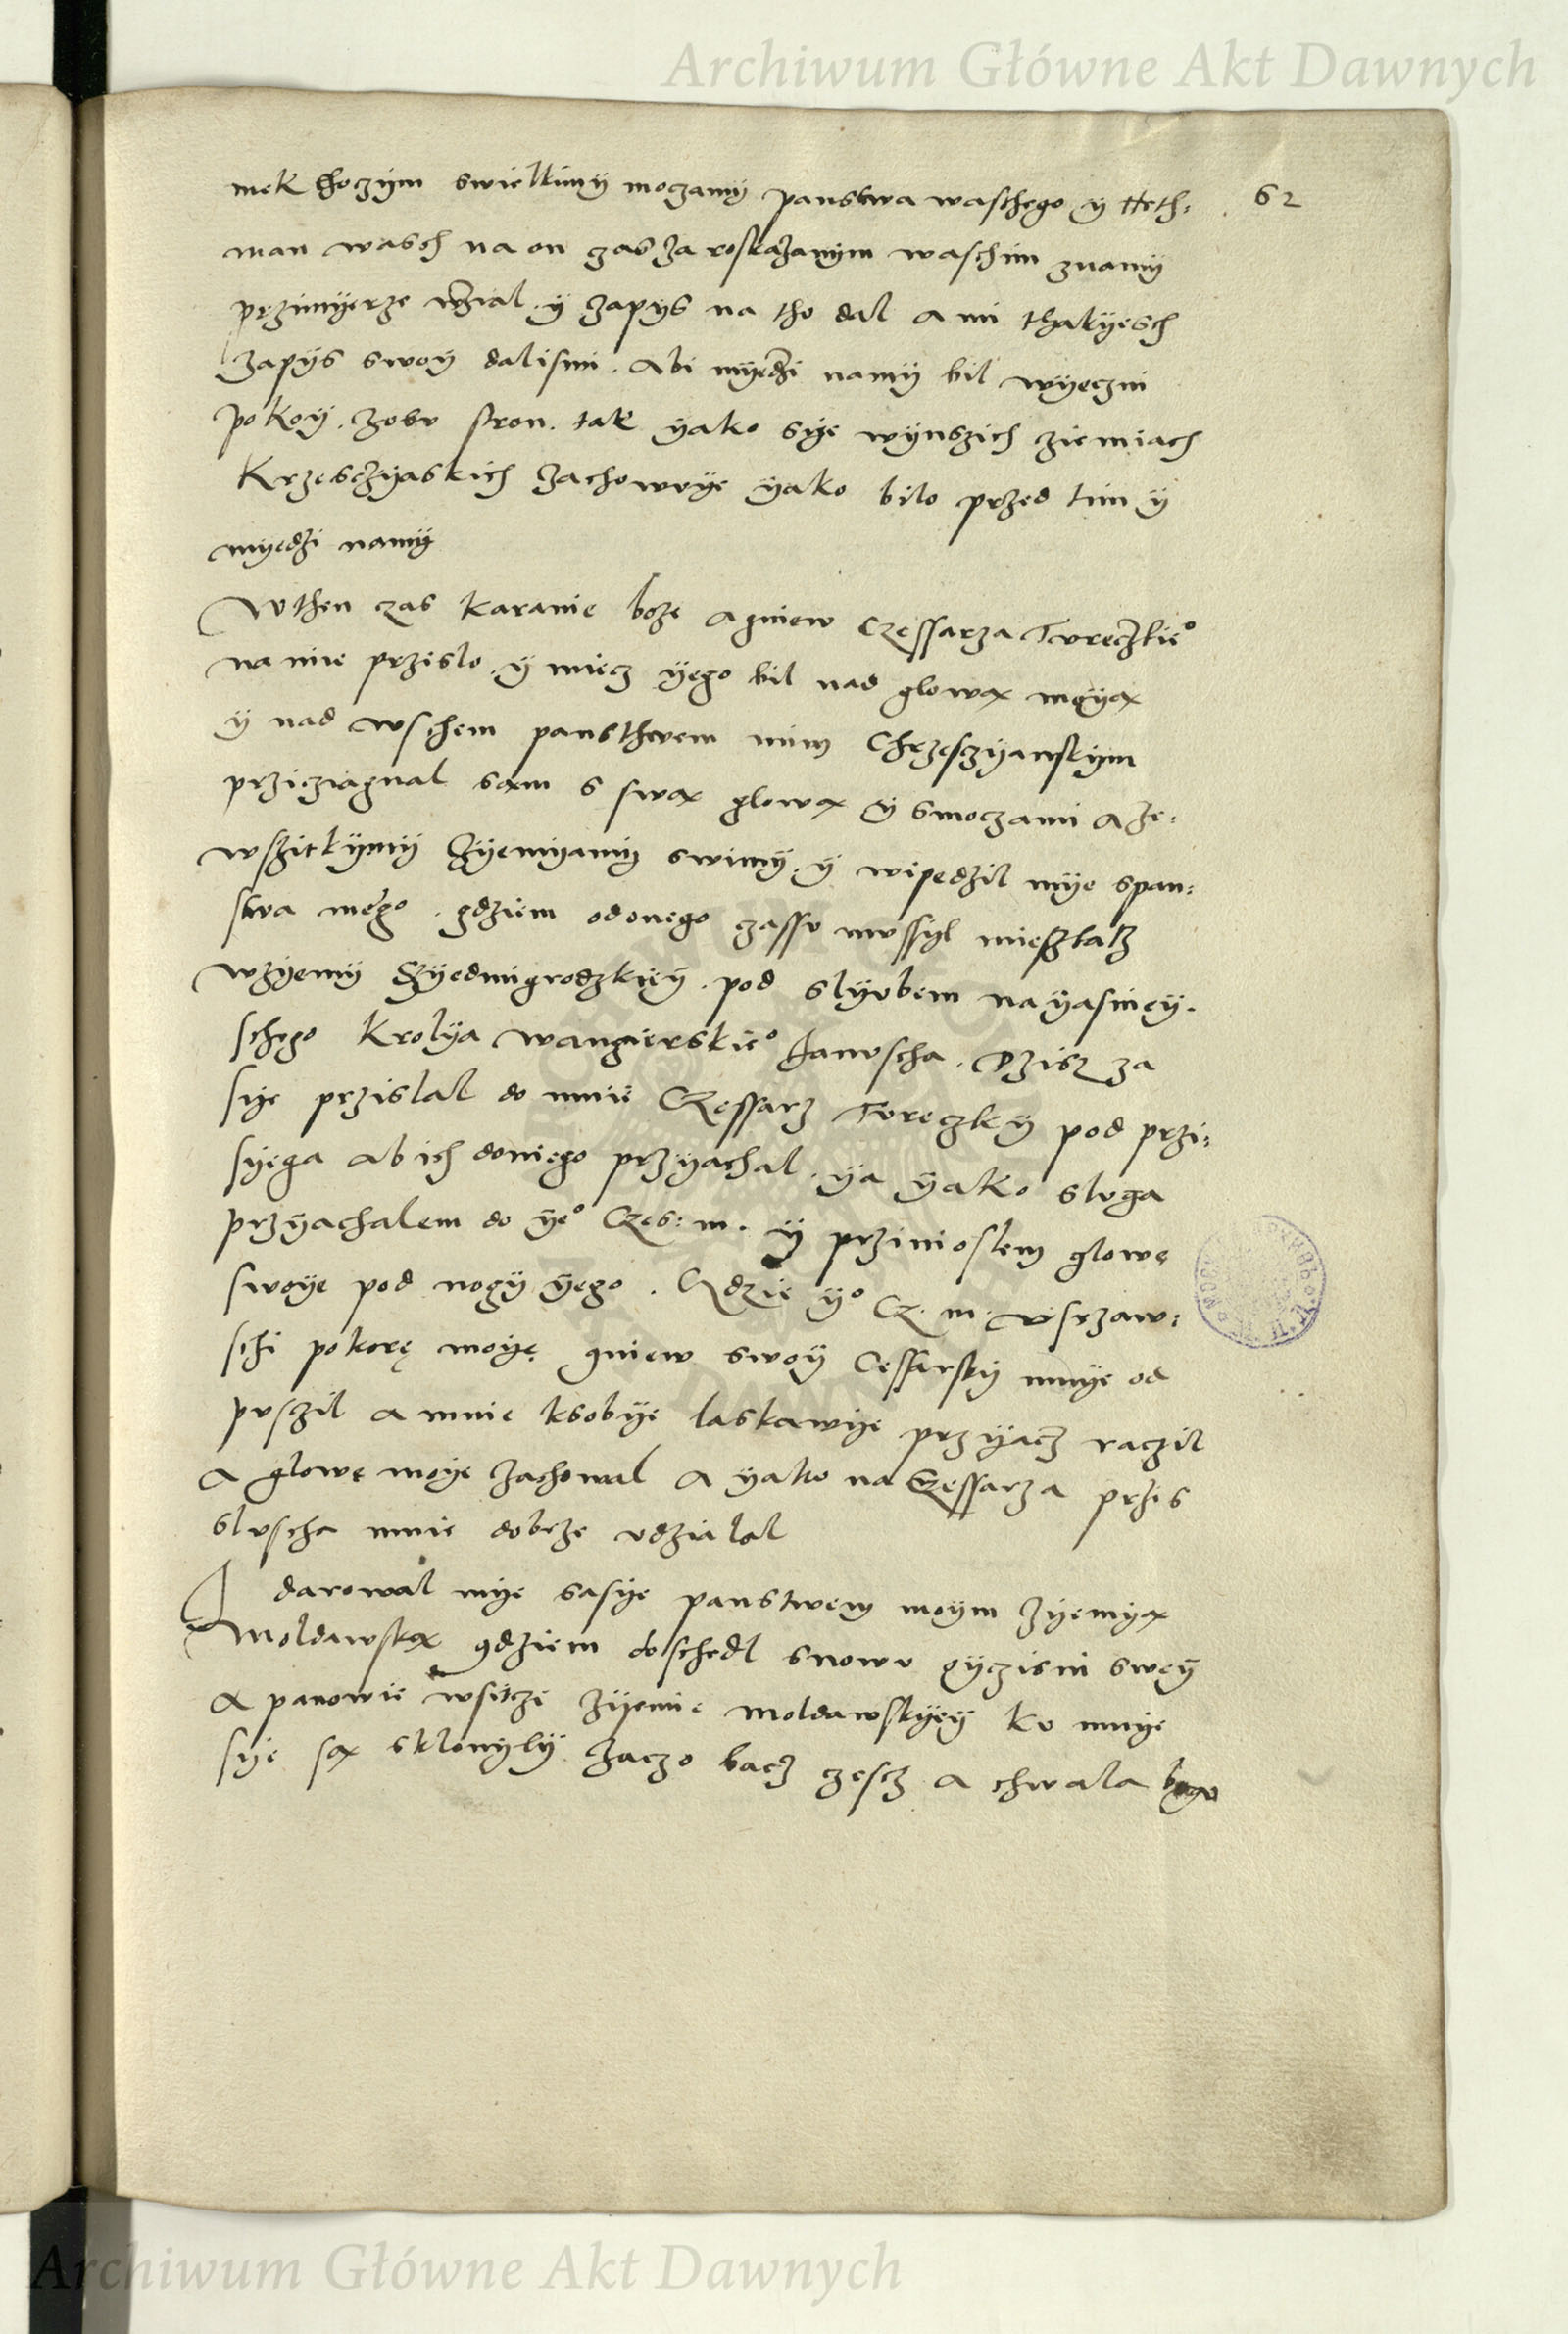 Archiwum Główne Akt Dawnych
62
mek choczym swielkimy moczamy panstwa waschego y Heth:
man wasch na on czas za roskazanym waschim znamy
przimyerze wzial. y zapys na tho dal a mi thakyesch
zapys swoy dalismi. Abi myedzi namy bil wyeczni
pokoy. zobu stron. tak yako sye wynszich ziemiach
Krzesczyaskich zachowuye yako bilo przed tim y
myedzi namy
Wthen czas karanie boze a gniew Czessarza Tureczkieº
na mie przislo. y miecz yego bil nad glową moyą
y nad wschem pansthwem mim Chrzesczyanskym
prziciagnal sam s swą glową y smoczami a ze:
wszitkymy Zyemyamy swimy. y wipedzil mye span:
stwa mego. gdziem odonego czassu mussyl mieszkacz
wzyemy Szyedmigrodzkiey. pod slyubem nayasniey.
schego Krolya wangierskieº Januscha. Dzisz za
sye przislal do mnie Czessarz Tureczky pod przi:
syega abich doniego przyachal. ya yako sluga
przyachalem do yeº Czes: m. y przinioslem glowę
swoye pod nogy yego. Gdzie yº Cz. m. usrzaw:
schi pokorę moyę gniew swoy Cessarsky mnye od
pusczil a mnie ksobye laskawye przyacz raczil
a glowę moye zachowal a yako na Czessarza przis
sluscha mnie dobrze udzialal
I darowal mye sasye panstwem moym zyemyą
Moldawską gdziem doschedl snowu oyczisni swey
a panowie wsitczi zyemie Moldawskyey ku mnye
sye są sklonyly zaczo bacz czescz a chwala bogu
Archiwum Główne Akt Dawnych